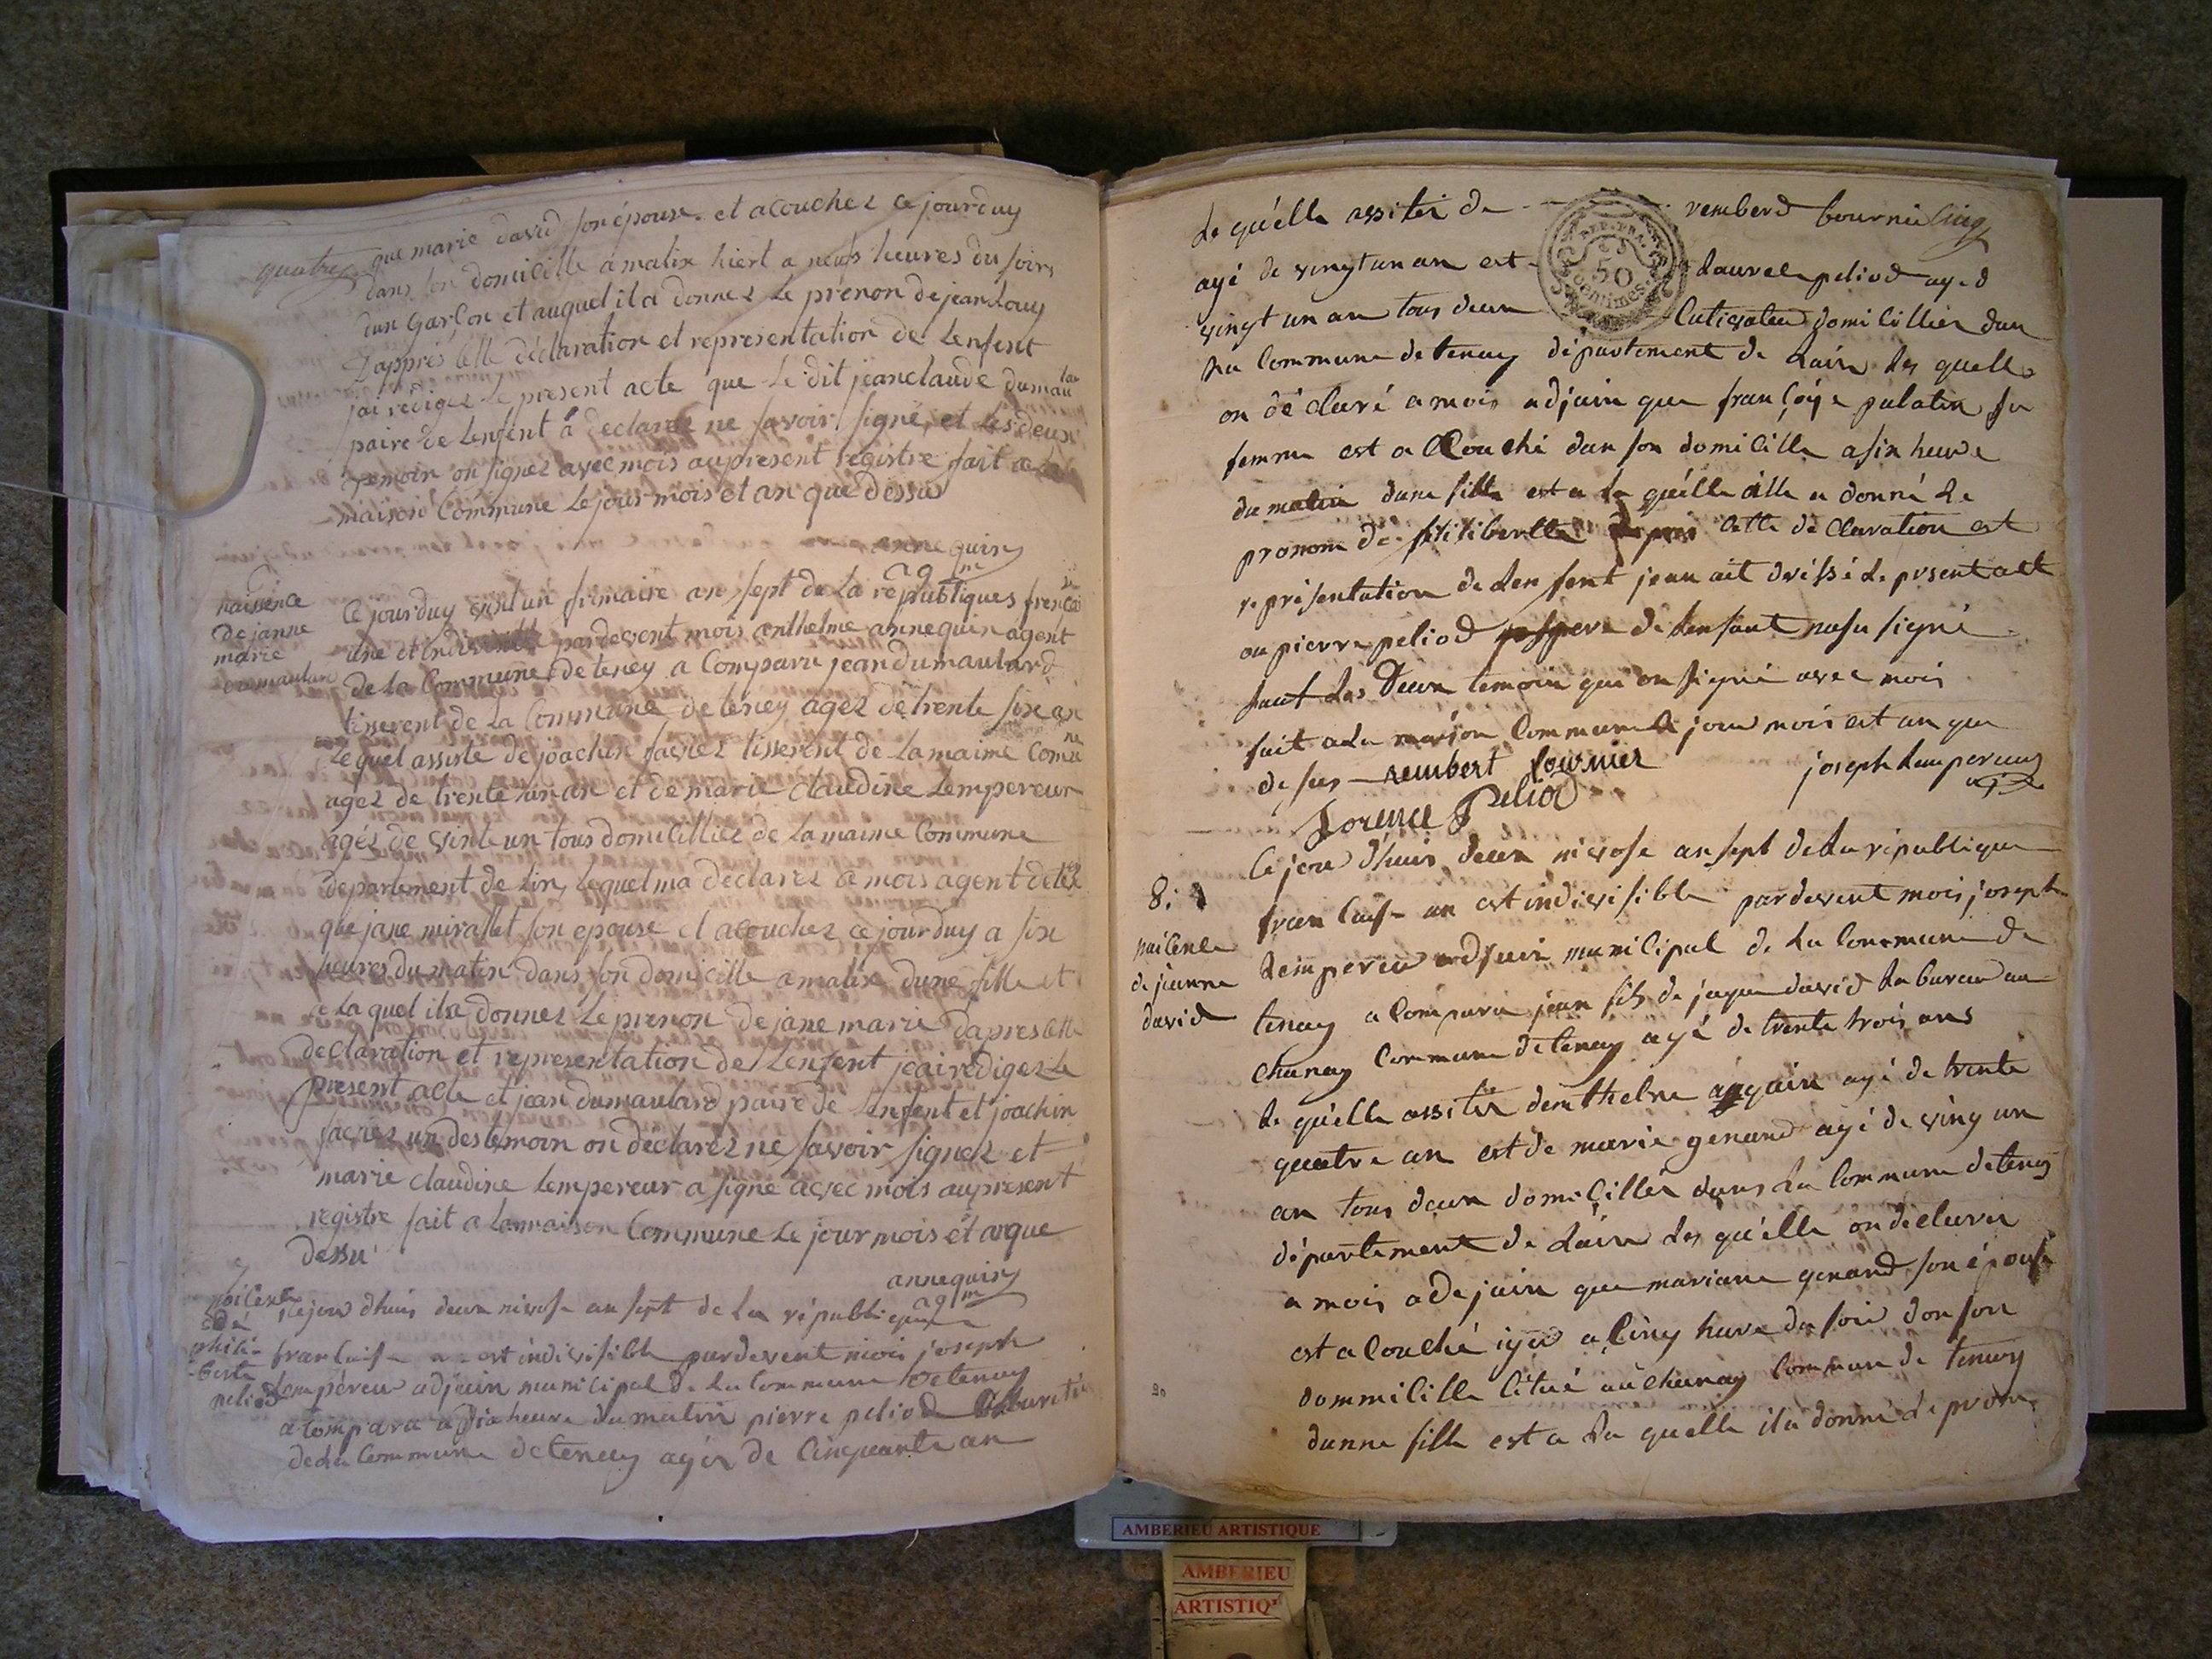 quatre
que marie david son épouse et acouchez ce jourduy
dans son domicille a malix hiert a neufs heures du soirs
dun garçon et auquel il a donnez le prenon de jean louy
d'apprés cette déclaration et representation de lenfent
jai rédigez le present acte que le dit jean claude dumaular
paire de lenfent à declarez ne savoir signé, et les deux
temoin on signez avec mois au present registre fait a la
maison commune le jours mois et an que dessus
annequin
agm
naissence
de janne
marie
dumaulard
Ce jourduy vint un frimaire an sept de la républiques frencaise
une et indivisible pardevent mois anthelme annequin agent
de la Commune de teney a Comparu jean dumaulard
tisserent de la Commune de teney agez de trente six an
lequel assiste de joachin jacquez tisserent de la maime Comune
agez de trente un an et de marie claudine Lempereur
agéz de vinte un tous domicilliez de la maime Commune
departement de lin, lequel ma declarez a mois agent de
que jane mirallet son epouse et acouchez ce jourduy a six
heures du matin dans son domicille a malix dune fille et
a laquel il a donnez le prenon de jane marie dapres cette
declaration et representation de lenfent jeai redigez le
present acte et jean dumaulard paire de lenfent et joachin
jacquez un des temoin on declarez ne savoir signez et
marie claudine lempereur a signe avec mois au present
registre fait a lamaison Commune le jour mois et an que
dessu
annequin
agm
7
naicence
de
phili-
berte
peliod
Cejour dhuis deux nivose an sept de la république
francaise un est indivisible pardevent mois joseph
lempéreur adjuin municipal de la commune de tenay
a compara a dix heure du matin pierre peliod
de la commune de tenay agéz de cinquante an
le quélle assitéz de rembere fournié cinq
REP. FRA.
50
centimes
agé de vingt un an est laurence peliod aged
vingt un an tous deux cutivateur domicillier dan
la commune de tenay département de lain les quelle
on déclaré a mois adjuin que françoise palatin sa
femme est accouché dan son domicille a six heure
du matin dune fille est a la quélle ille a donné le
pronom de filiberte dapres cette declaration est
représentation de len fent jeun ait dréssé le présent act
ou pierre peliod pere de lenfant na su signé
saut les deux temoin qui on signé avec mois
fait a la maison commune le jour mois est an que
de sus rembert fournier joseph lempereur
Lorence Peliod
8.
naicence
de jeanne
david
Ce jour d'huis deux nivose an sept de la république
francaise un est indivisible pardevent mois joseph
lempereur adjuin municipal de la commune de
tenay a comparu jean fils de jaque david labureur au
chanay commune de tenay agé de trente trois ans
le quélle assitéz denthelme anquin agé de trente
quatre an est de marie genand agé de ving un
an tous deux domicilléz dans la commune de tenay
département de láin les quélle on declarer
a mois adejuin que mariane genand son épouse
est acouché iyer a cinq heure du soir don son
dommicille citué au chanay commune de tenay
dunne fille est a la quelle il a donné le prono
20
AMBERIEU ARTISTIQUE
AMBERIEU
ARTISTIQ'